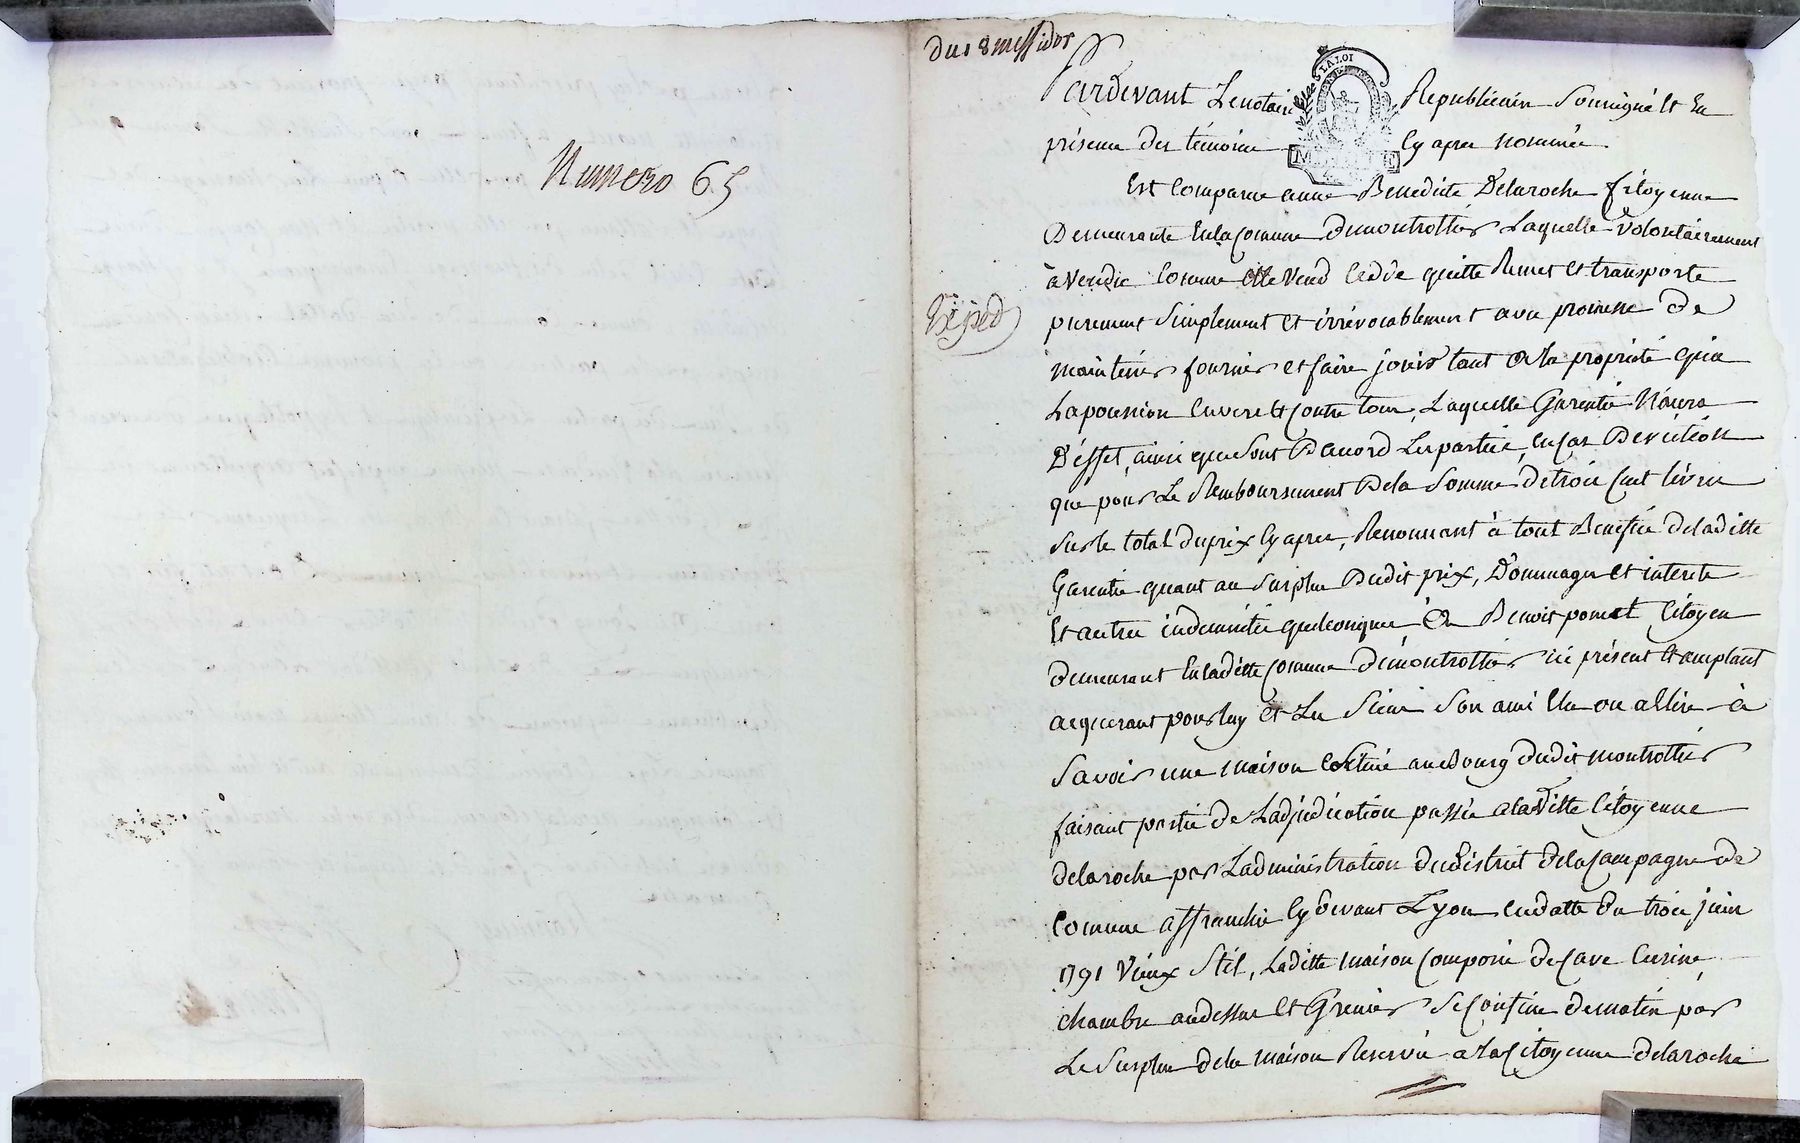 Numero 65
Du 18 messidor
Expéd
LA LOI
Pardevant Le notaire Republicain Soussigné et En
présence des témoins Cy apres nommés
Est Comparue anne Benedicte Delaroche Citoyenne
Demeurante En la Comune de montrottier Laquelle volontairement
à vendu Comme elle vend Cedde quitte Remet et transporte
purement Simplement et irrévocablement avec promesse de
maintenir fournir et faire jouir tant de la proprieté que
La possession Envers et Contre tous, Laquelle Garentie N'aura
D'effet, ainsi que Sont D'accord Les parties, en Cas D'eviction
que pour Le Remboursement De la Somme de trois Cent livres
Sur le total du prix Cy apres, Renonçant à tout Benefice de laditte
Garentie quant au Surplus Dudit prix, Dommages et interets
Et autres indemnités quelconques à Benoit poncet Citoyen
demeurant En laditte Comune de montrottier ici présent et acceptant
acquerant pour luy et Les Siens Son ami Elu ou a Elire à
Savoir une maison Scituée au Bourg dudit montrottier
faisant partie de Ladjudication passée a laditte Citoyenne
delaroche par L'administration du district de la Campagne de
Commune affranchie Cy devant Lyon en datte du trois juin
1791 Vieux Stil, Laditte maison Composée de Cave Cuisine
chambre au dessus et Grenier Se Confine de matin par
Le Surplus de la maison Reservée a La Citoyenne delaroche